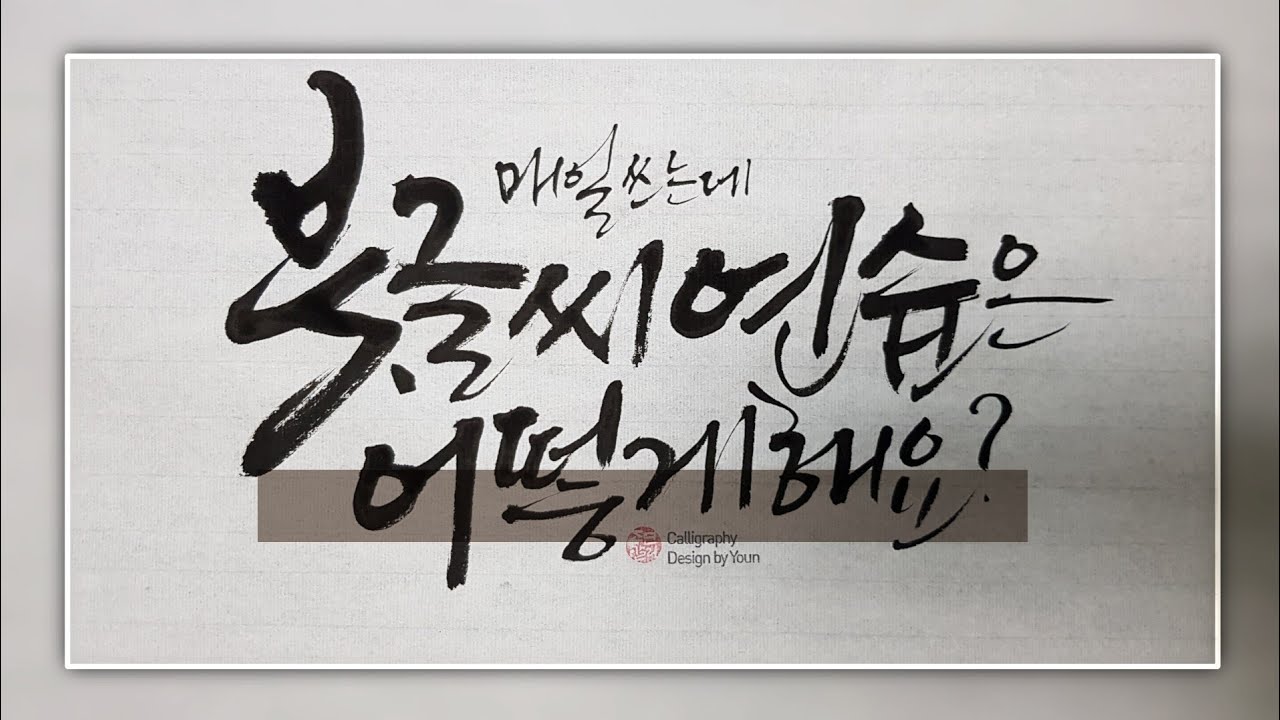 매일쓰는데
붓글씨연습은
어떻게해요?
Calligraphy
Design by Youn